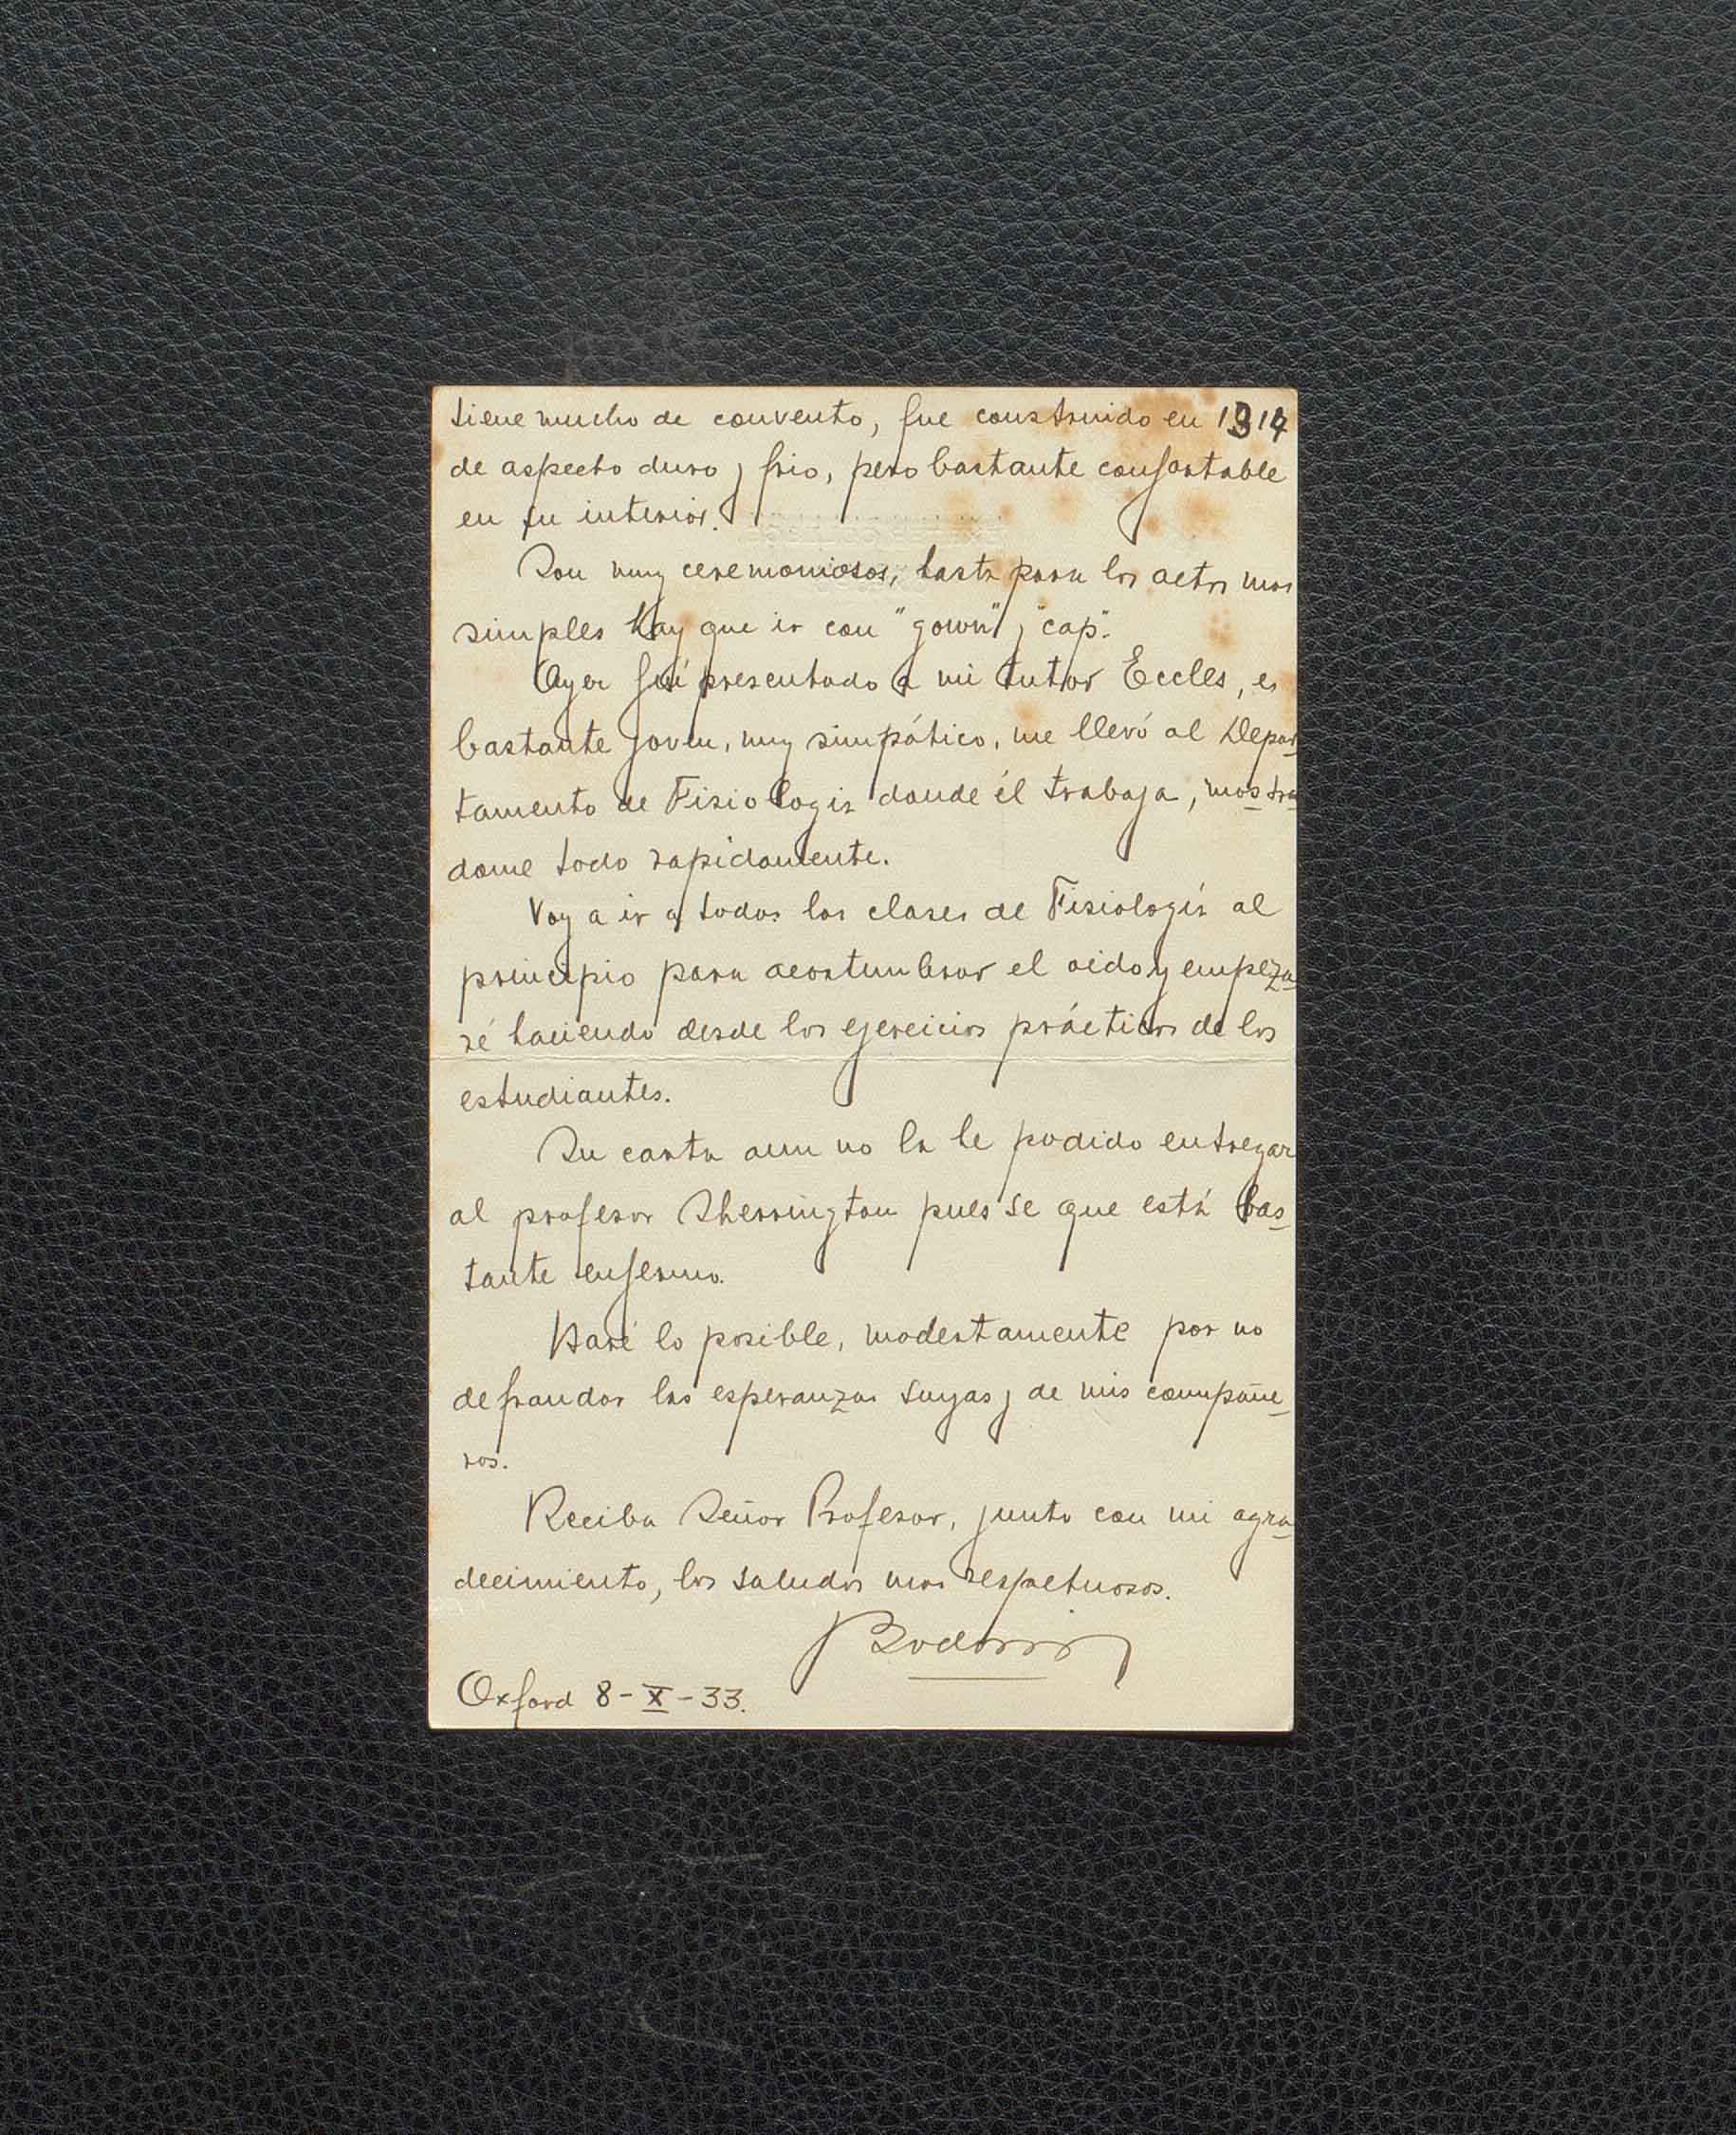 tiene mucho de convento, fue construido en 1314
de aspecto duro y frio, pero bastante confortable
en su interior.
Son muy ceremoniosos, hasta para los actos mas
simples hay que ir con "gown" y "cap".
Ayer fuí presentado a mi tutor Eccles, es
bastante joven, muy simpático, me llevó al Depar-
tamento de Fisiologia donde él trabaja, mostra
dome todo rapidamente.
Voy a ir a todas las clases de Fisiología al
principio para acostumbrar el oido y empeza-
ré haciendo desde los ejercicios prácticos de los
estudiantes.
Su carta aun no la he podido entregar
al profesor Sherrington pues se que está bas-
tante enfermo.
Haré lo posible, modestamente por no
defraudar las esperanzas suyas y de mis compañe-
ros.
Reciba Señor Profesor, junto con mi agra-
decimiento, los saludos mas respetuosos.
Oxford 8-X-33.